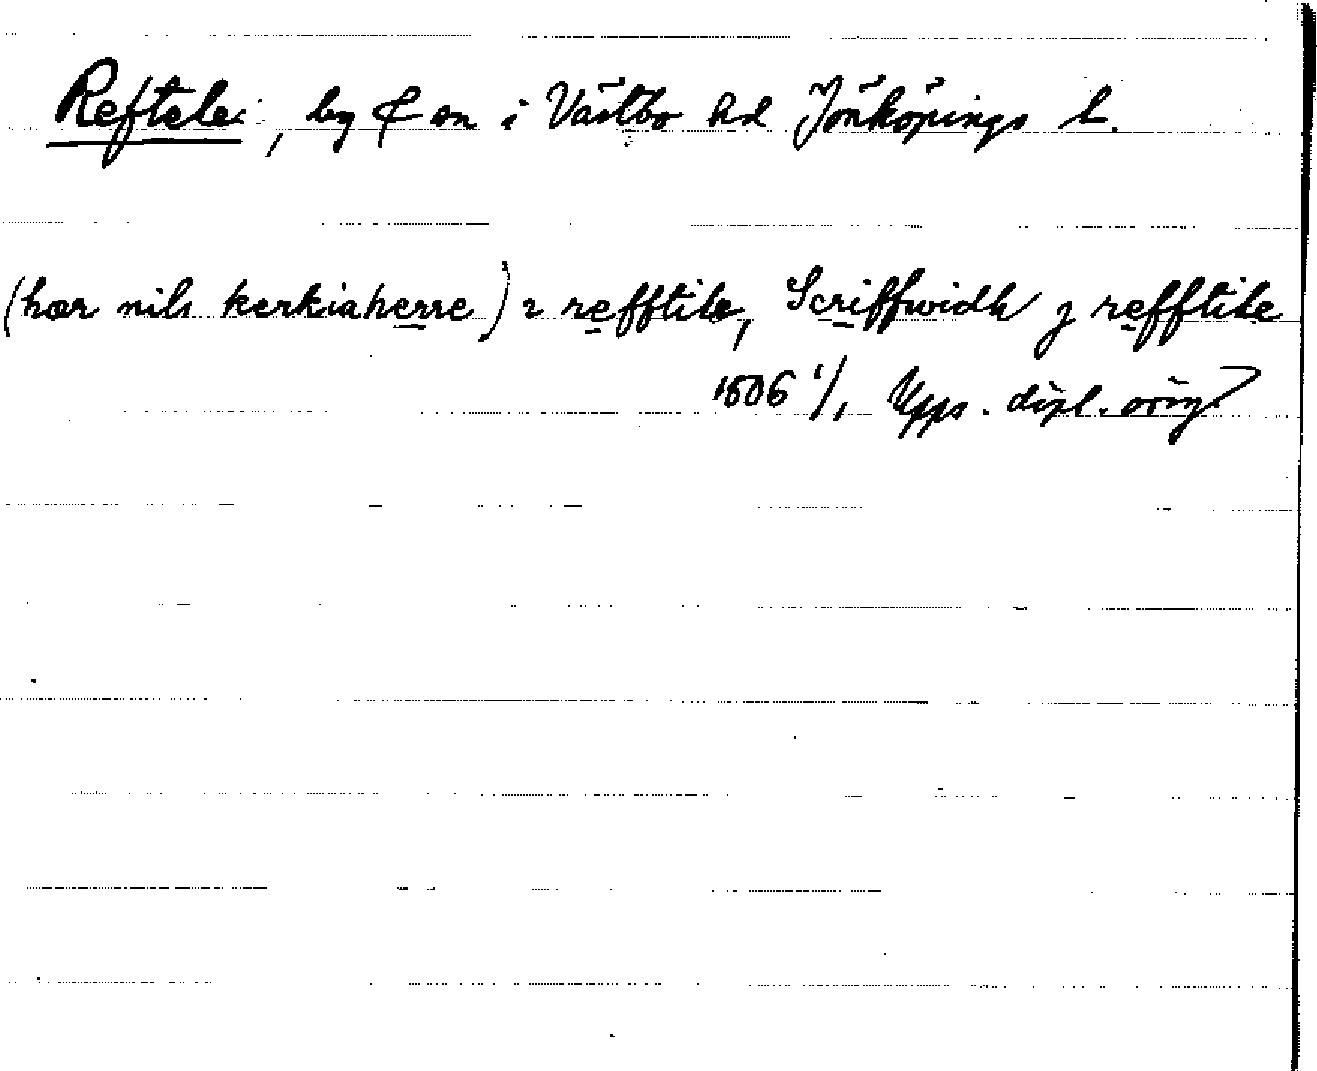 Reftele, by & sn i Västbo hd Jönköpings l.
(hær nils kerkiaherre) i refftile, Scriffwidh j refftile
1506 1/1 Upps. dipl. orig